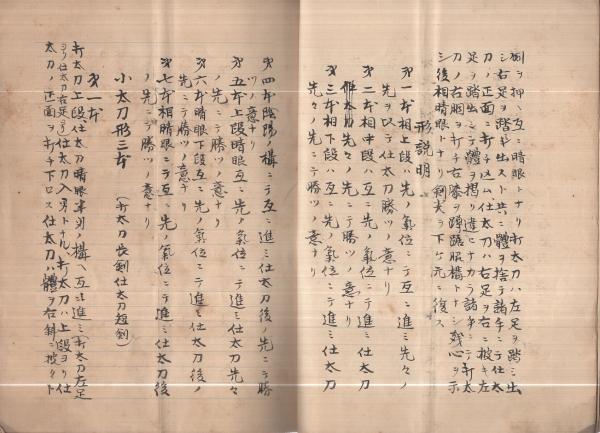 側ヲ押シ互ニ晴眼トナリ打太刀ハ左足ヲ踏ミ出
シ右足ヲ踏ミ出スト共ニ體ヲ捨テ諸手ニテ仕太
刀ノ正面ニ打チ込ム仕太刀ハ右足ヲ右ニ披キ左
足ヲ踏出シテ體ヲ摺リ違ヒナガラ諸手ニテ打太
刀ノ右胴ヲ打チ右膝ヲ蹲踞服構トナシ残心ヲ示
シ後相晴眼トナリ剣尖ヲ下ゲ元ニ復ス
形説明
第一本相上段ハ先ノ氣位ニテ互ニ進ミ先々ノ
先ヲ以テ仕太刀勝ツノ意ナリ
第二本相中段ハ互ニ先ノ氣位ニテ進ミ仕太刀
先々ノ先ニテ勝ツノ意ナリ
第三本相下段ハ互ニ先ノ氣位ニテ進ミ仕太刀
先々ノ先ニテ勝ツノ意ナリ
第四本陰陽ノ構ニテ互ニ進ミ仕太刀後ノ先ニテ勝
ツノ意ナリ
第五本上段晴眼互ニ先ノ氣位ニテ進ミ仕太刀先々
ノ先ニテ勝ツノ意ナリ
第六本晴眼下段互ニ先ノ氣位ニテ進ミ仕太刀後ノ
先ニテ勝ツノ意ナリ
第七本相晴眼ニテ互ニ先ノ氣位ニテ進ミ仕太刀後
ノ先ニテ勝ツノ意ナリ
小太刀形三本 (打太刀長剣仕太刀短剣)
第一本
打太刀上段仕太刀晴眼半身ノ構ヘ互ニ進ミ打太刀左足
ヨリ仕太刀右足ヨリ仕太刀入身トナル打太刀ハ上段ヨリ仕
太刀ノ正面ヲ打チ下ロス仕太刀ハ體ヲ右斜ニ披クト